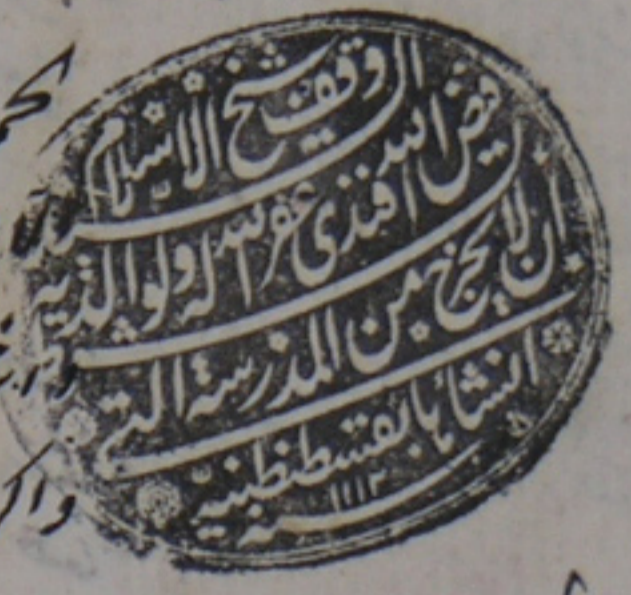 وقف شيخ الاسلام
فيض الله افندى غفر الله له ولوالديه
بشرط أن لا يخرج من المدرسة التى
انشأها بقسطنطينية
سنة ١١١٣